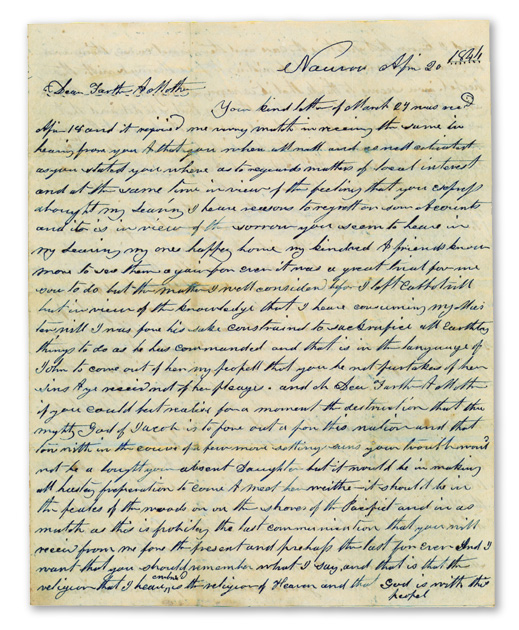 Nauvoo Apr 20 1846
Dear Farth & Mother
Your kind letter of March 27 was recd
Apr 18 and it rejoiced me very mutch in receiving the same in
hearing from you & that you when all well and as well contented
as you stated you where as to reguards matters of local interest
and at the same time in view of the feeling that you express
about my leaving I have reasons to regrett on som acounts
and it is in view of the sorrow you seem to heare in
my leaving my once happy home my kindred & friends know
more to see them a gain for ever it was a great trial for me
sow to do but the matter I well considerd before I left
but in view of the knowledge that I have concerning my Mas
ters will I was fore his sake constrained to sackrafice all Earthly
things to do as he has commanded and that is in the language of
John to come out of her my peopell that you be not partakers of her
sins & ye receive not of her plages. and oh Dear Farth & Mother
if you could but realise for a moment the destruction that the
mighty God of Jacob is to pore out a pon this nation and that
to with in the course of a few more setting suns your trouble would
not be a bought your absent Daughter but it would be in making
all hasty preparation to come & meet her weither it should be in
the peakes of the woods or on the shores of the Pacific and in as
mutch as this is probiley the last communication that you will
receive from me fore the present and prehaps the last for ever And I
want that you should remember what I say, and that is that the
religion that I have embraced is the religion of Heaven and that God is with this
peopel